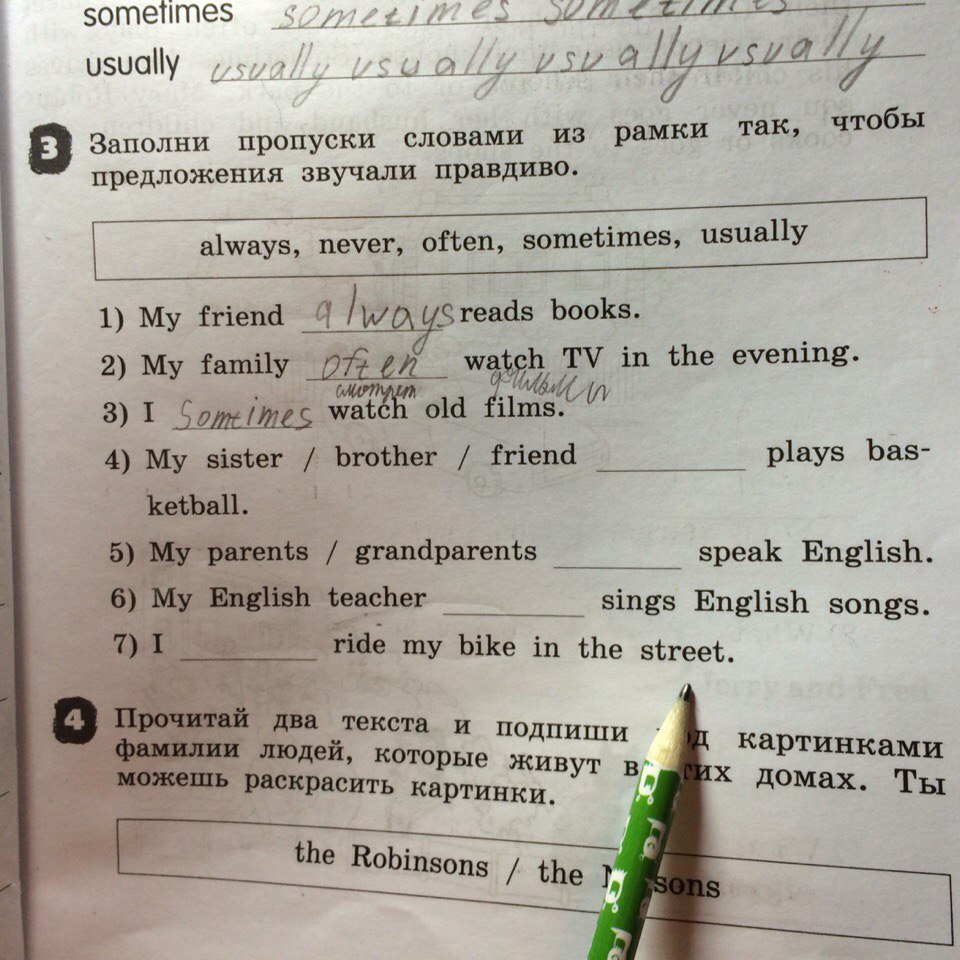 sometimes sometimes sometimes
usually usually usually usually usually
3 Заполни пропуски словами из рамки так, чтобы
предложения звучали правдиво.
always, never, often, sometimes, usually
1) My friend always reads books.
2) My family often watch TV in the evening.
смотрят
3) I Somtimes watch old films.
4) My sister / brother / friend ________ plays bas-
ketball.
5) My parents / grandparents ________ speak English.
6) My English teacher ________ sings English songs.
7) I ________ ride my bike in the street.
4 Прочитай два текста и подпиши картинками
фамилии людей, которые живут в домах. Ты
можешь раскрасить картинки.
the Robinsons / the